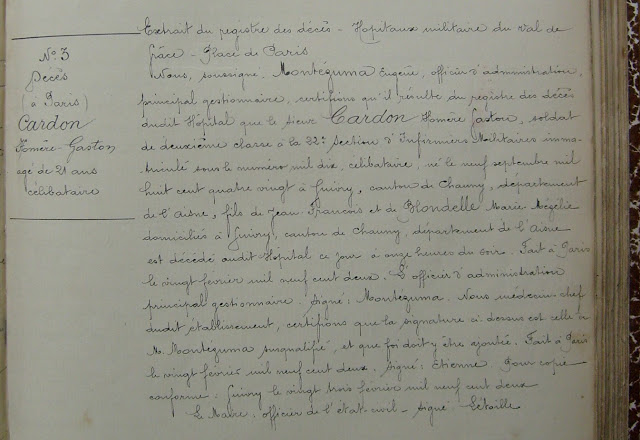 Extrait du registre des décès - Hopitaux militaire du Val de
Grâce - Place de Paris
N° 3
Décès
(à Paris)
Cardon
Homère Gaston
agé de 21 ans
célibataire
Nous, soussigné, Montézuma Eugène, officier d'administration,
principal gestionnaire, certifions qu'il résulte du registre des décès
dudit Hôpital que le sieur Cardon Homère Gaston, soldat
de deuxième classe à la 22e Section d'Infirmiers Militaires imma-
triculé sous le numéro mil dix, célibataire, né le neuf septembre mil
huit cent quatre vingt à Guivry, canton de Chauny, département
de l'Aisne, fils de Jean François et de Blondelle Marie
domiciliés à Guivry, canton de Chauny, département de l'Aisne
est décédé audit Hôpital ce jour à onze heures du soir. Fait à Paris
le vingt février mil neuf cent deux. L'officier d'administration
principal gestionnaire. Signé: Montézuma. Nous médecin chef
dudit établissement, certifions que la signature ci dessus est celle de
M. Montézuma susqualifié, et que foi doit y être ajoutée. Fait à Paris
le vingt février mil neuf cent deux. Signé: Etienne. Pour copie
conforme: Guivry le vingt trois février mil neuf cent deux
Le Maire, officier de l'état-civil - Signé: